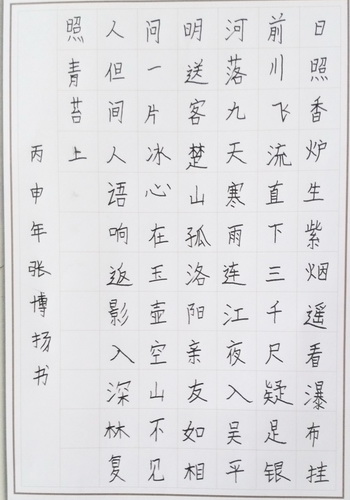 日照香炉生紫烟遥看瀑布挂
前川飞流直下三千尺疑是银
河落九天寒雨连江夜入吴平
明送客楚山孤洛阳亲友如相
问一片冰心在玉壶空山不见
人但间人语响返影入深林复
照青苔上
丙申年张博扬书